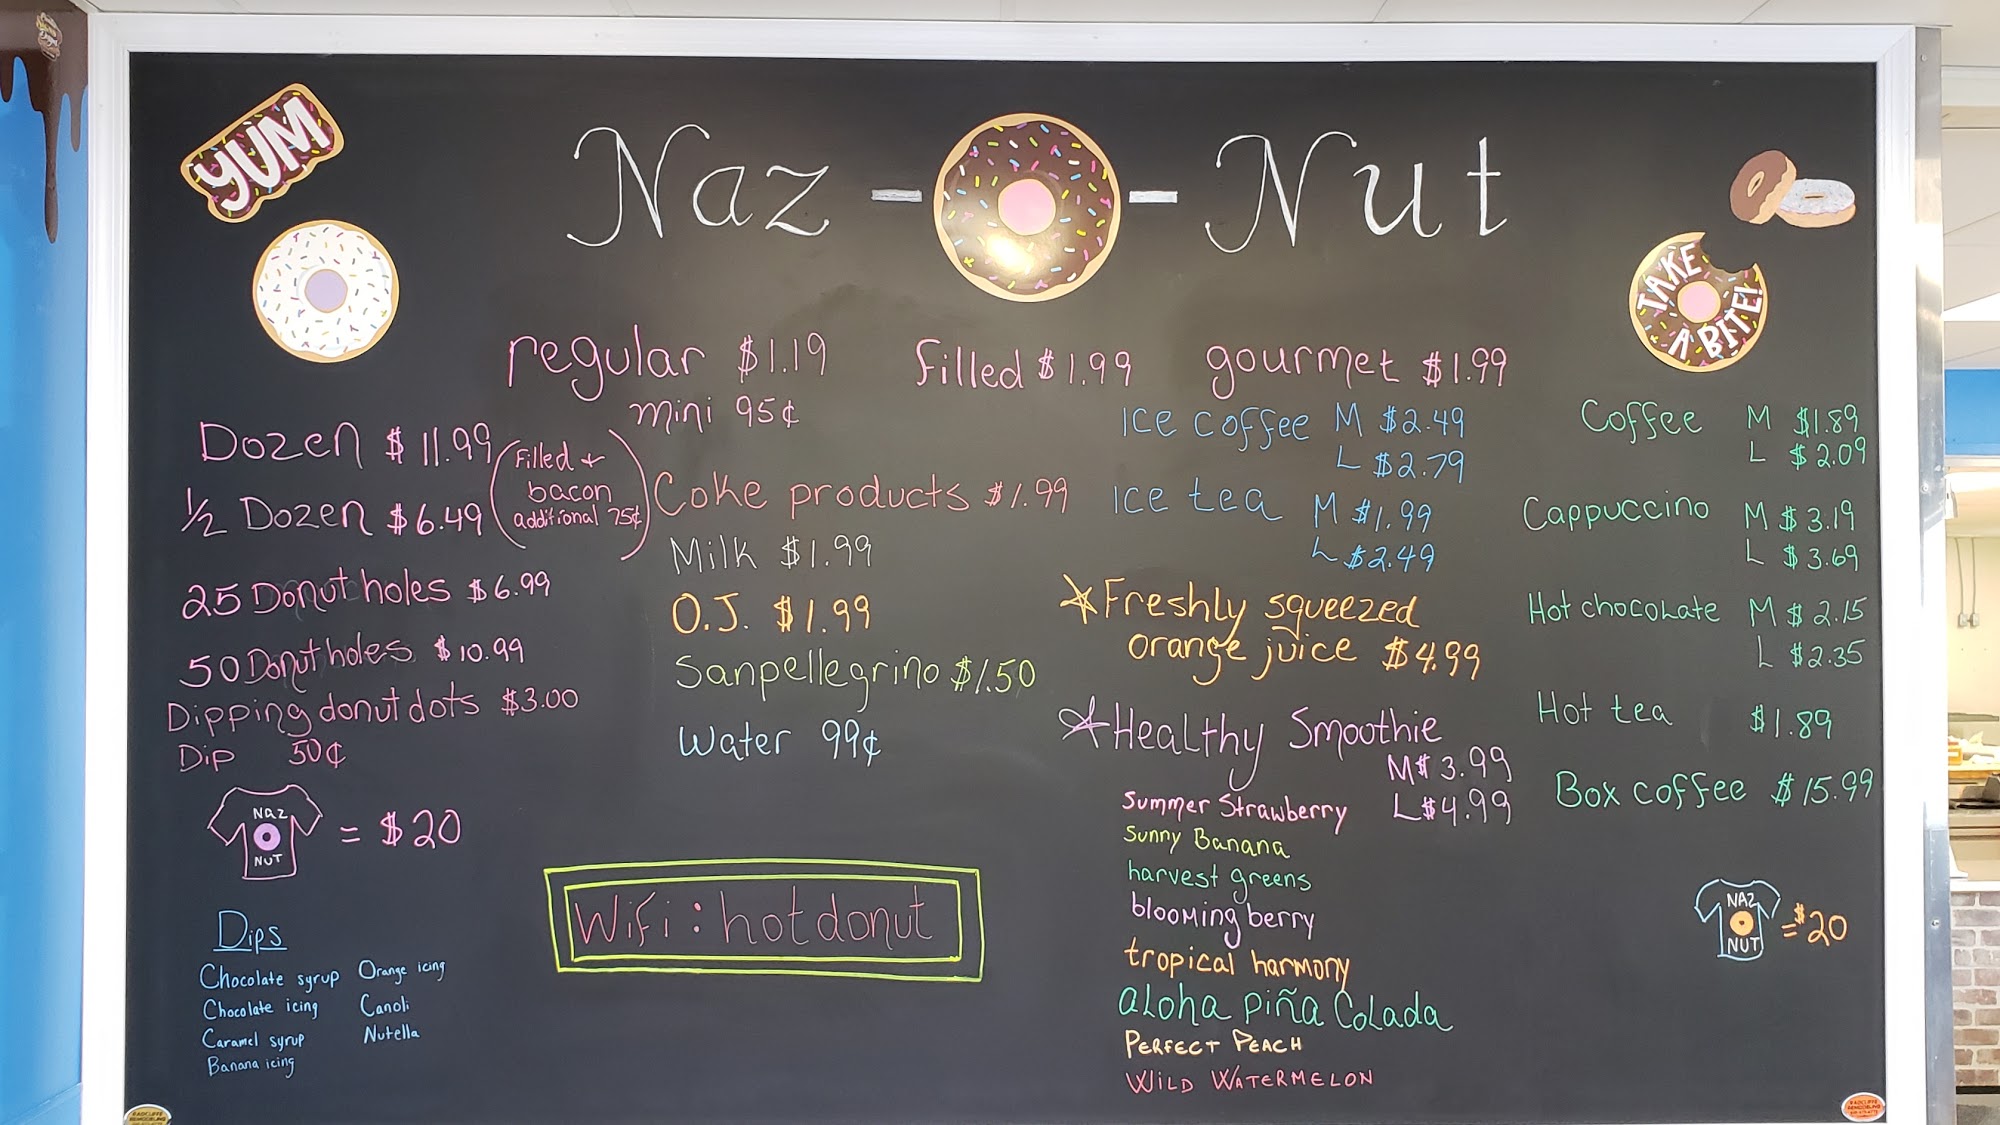 YUM
Naz - - Nut
TAKE
A BITE!
regular $1.19
mini 95¢
filled $1.99
gourmet $1.99
Dozen $11.99
1/2 Dozen $6.49
(Filled +
bacon
additional 75¢)
25 Donut holes $6.99
50 Donut holes $10.99
Dipping donut dots $3.00
Dip 50¢
NAZ
NUT
= $20
Dips
Chocolate syrup
Chocolate icing
Caramel syrup
Banana icing
Orange icing
Canoli
Nutella
Coke products $1.99
Milk $1.99
O.J. $1.99
Sanpellegrino $1.50
Water 99¢
WiFi: hotdonut
Ice coffee M $2.49
L $2.79
Ice tea M $1.99
L $2.49
Freshly squeezed
orange juice $4.99
Healthy Smoothie
M $3.99
L $4.99
Summer Strawberry
Sunny Banana
harvest greens
blooming berry
tropical harmony
aloha piña Colada
PERFECT PEACH
WILD WATERMELON
Coffee M $1.89
L $2.09
Cappuccino M $3.19
L $3.69
Hot chocolate M $2.15
L $2.35
Hot tea $1.89
Box coffee $15.99
NAZ
NUT
= $20